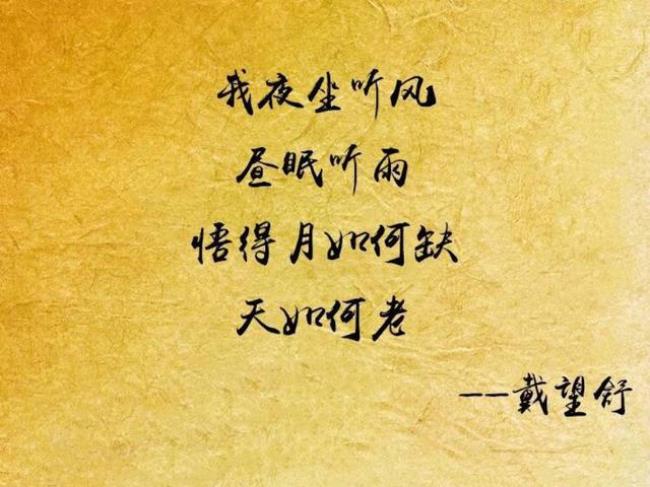 我夜坐听风
昼眠听雨
悟得月如何缺
天如何老
--戴望舒